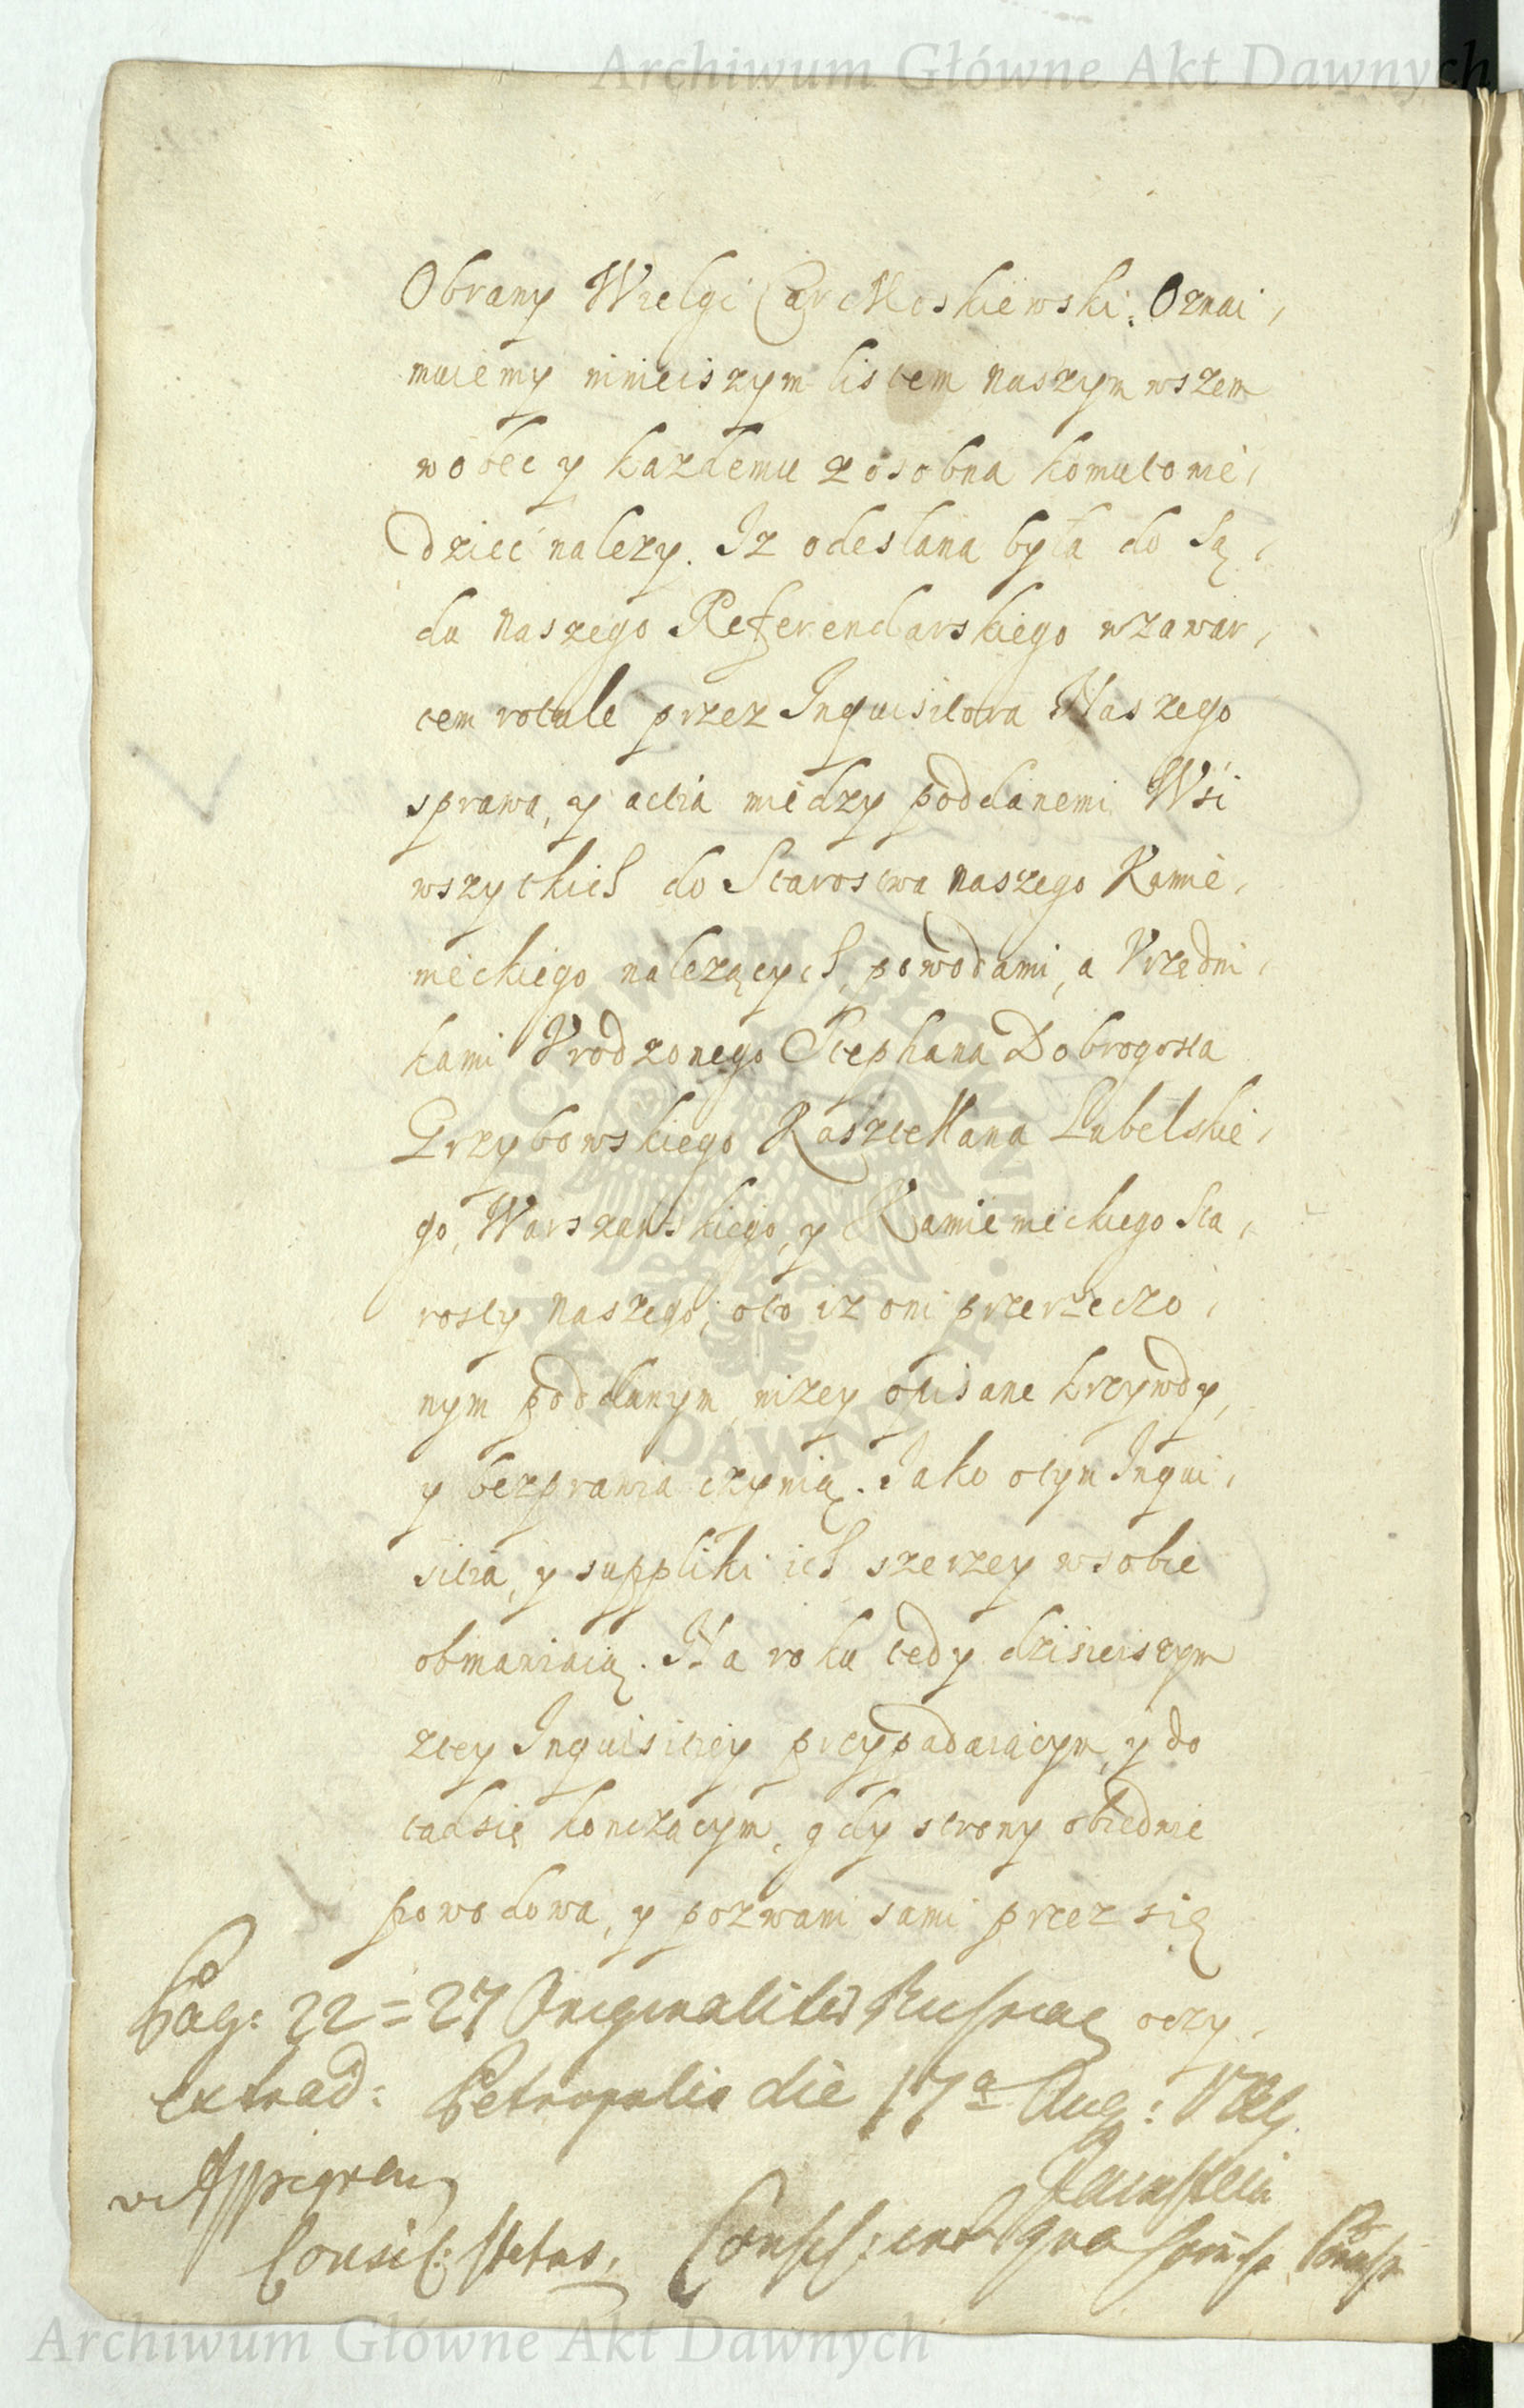 Archiwum Główne Akt Dawnych
Obrany Wielgi Car Moskiewski. Oznai,
muiemy ninieiszym listem naszym wszem
wobec y kazdemu zosobna komu to wie,
dzieć nalezy. Iz odesłana była do Są,
du naszego Referendarskiego w zawar,
tem rotule przez Inquisitora Naszego
sprawa, y actia między poddanemi Wśi
wszytkich do Starostwa naszego Kamie,
nieckiego nalezących, powodami, a Vrzędni,
kami Vrodzonego Stephana Dobrogosta
Grzybowskiego Kasztellana Lubelskie,
go, Warszawskiego, y Kamienieckiego Sta,
rosty naszego; oto iz oni przerzeczo,
nym poddanym, nizey opisane krzywdy,
y bezprawia czynią. Iako otym Inqui,
sitia, y suppliki ich szerzey w sobie
obmawiaią. Na roku tedy dzisieiszym
ztey Inquisitiey przypadaiącym, y do
tąd się konczącym, gdy strony obiedwie
powodowa, y pozwani sami przez się
oczy,
Pag: 22 = 27 Originaliter Russiae
extrad: Petropoli die 17a Aug: 1798
Consil: Status,
ARCHIWUM GŁÓWNE AKT DAWNYCH
Archiwum Główne Akt Dawnych